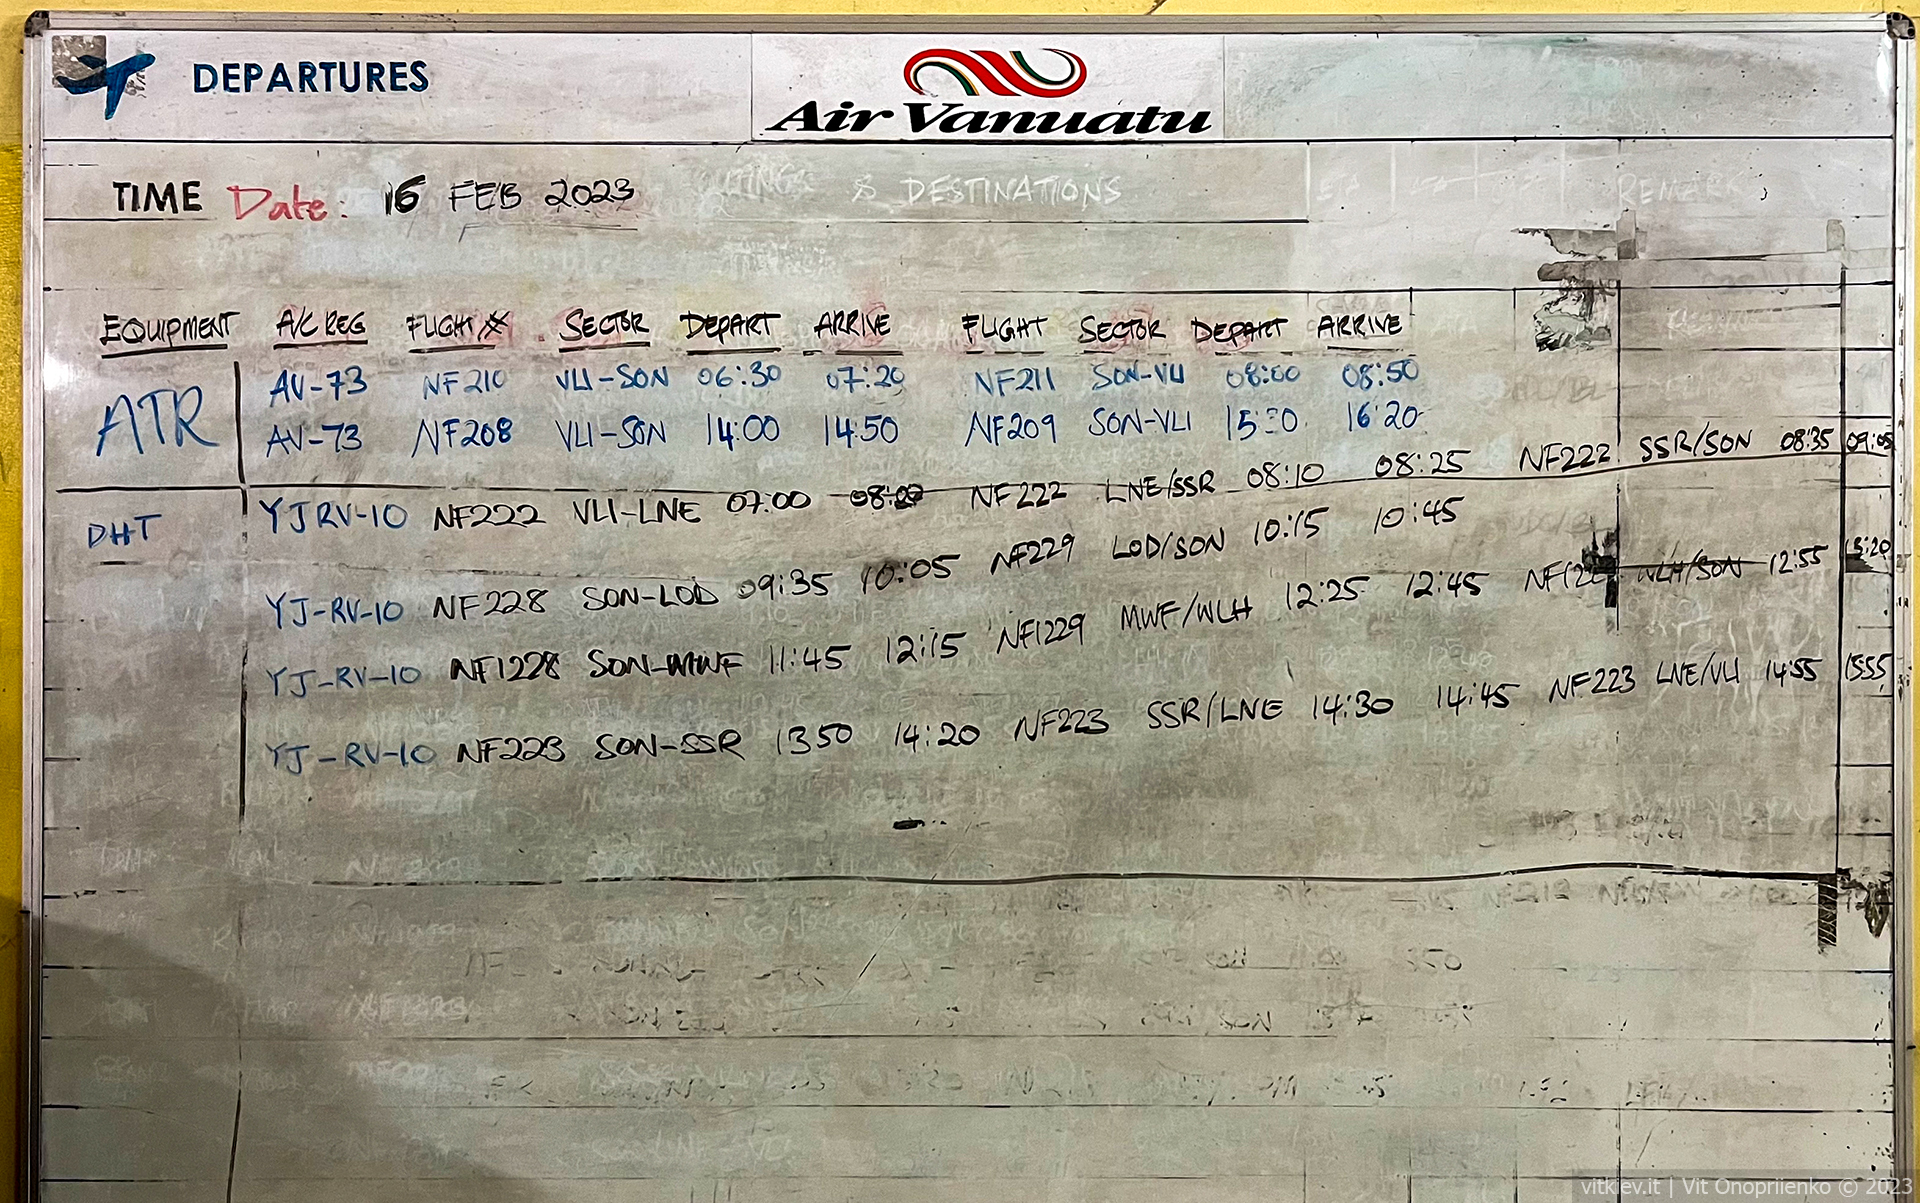 DEPARTURES
Air Vanuatu
TIME Date: 16 FEB 2023
& DESTINATIONS
EQUIPMENT A/C REG FLIGHT # SECTOR DEPART ARRIVE FLIGHT SECTOR DEPART ARRIVE
ATR
AV-73 NF210 VLI-SON 06:30 07:20 NF211 SON-VLI 08:00 08:50
AV-73 NF208 VLI-SON 14:00 14:50 NF209 SON-VLI 15:30 16:20
DHT
YJRV-10 NF222 VLI-LNE 07:00 08:00 NF222 LNE/SSR 08:10 08:25 NF222 SSR/SON 08:35 09:05
YJ-RV-10 NF228 SON-LOD 09:35 10:05 NF229 LOD/SON 10:15 10:45
YJ-RV-10 NF1228 SON-MWF 11:45 12:15 NF1229 MWF/WLH 12:25 12:45 WLH/SON 12:55
YJ-RV-10 NF223 SON-SSR 1350 14:20 NF223 SSR/LNE 14:30 14:45 NF223 LNE/VLI 14:55 1555
vitkiev.it | Vit Onopriienko © 2023